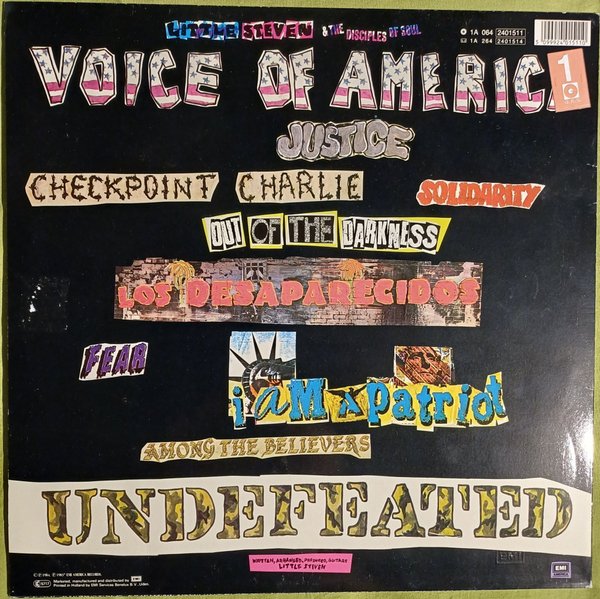 LITTLE STEVEN & THE DISCIPLES OF SOUL
1A 064 2401511
1A 264 2401514
5 099924 015110
VOICE OF AMERICA
1
JUSTICE
CHECKPOINT CHARLIE
SOLIDARITY
OUT OF THE DARKNESS
LOS DESAPARECIDOS
FEAR
i aM A patriot
AMONG THE BELIEVERS
UNDEFEATED
WRITTEN, ARRANGED, PRODUCED, GUITARS
LITTLE STEVEN
EMI AMERICA RECORDS.
Marketed, manufactured and distributed by EMI
Printed in Holland by EMI Services Benelux B.V., Uden.
EMI
AMERICA